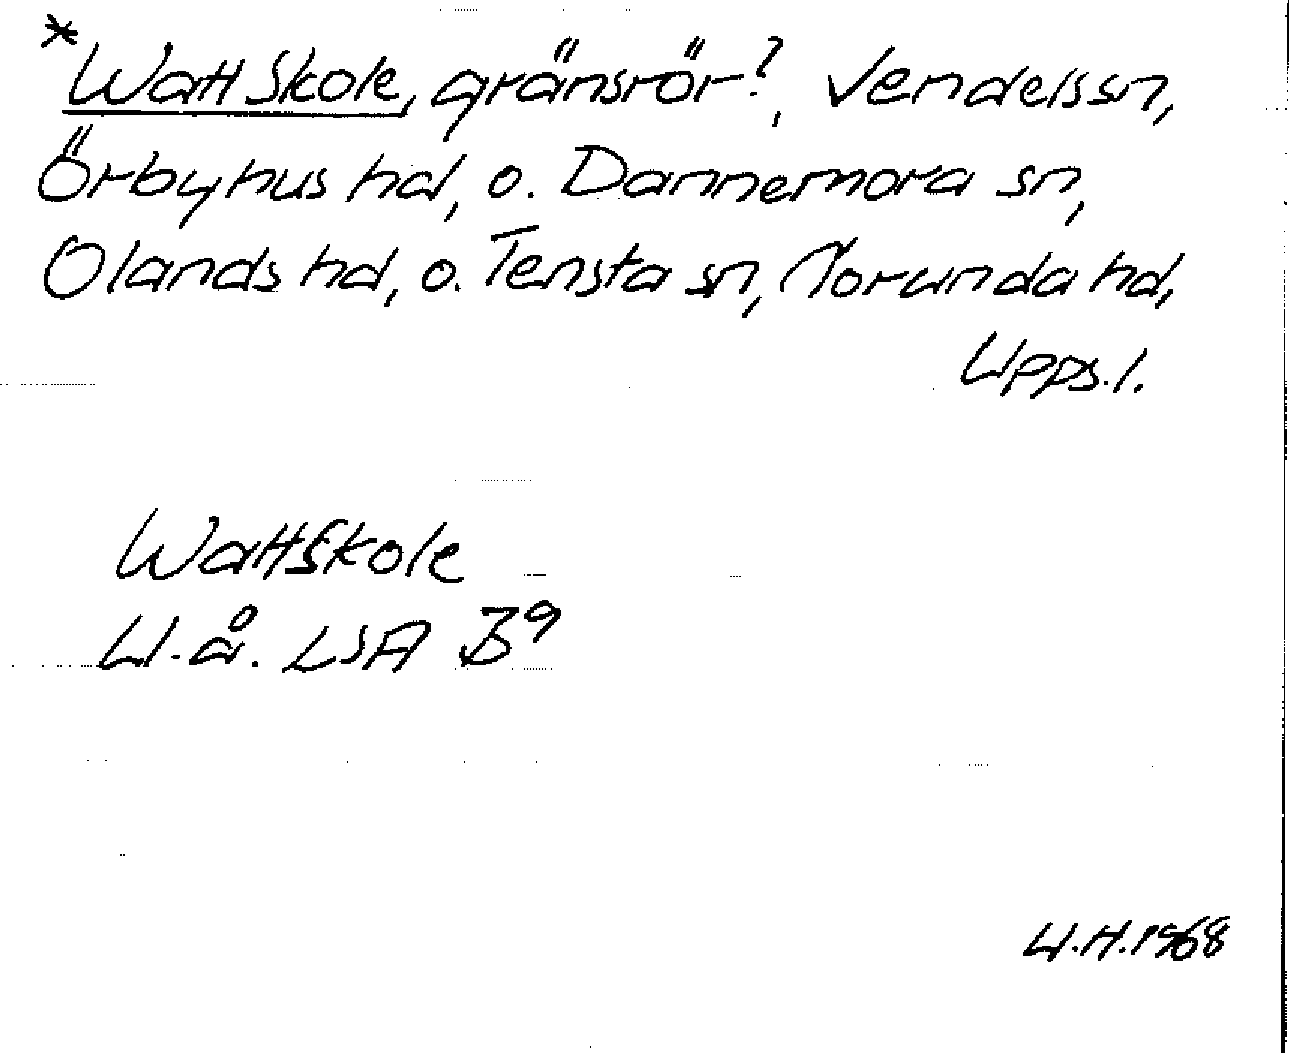 *Watt Skole, gränsrör?, Vendels sn,
Örbyhus hd, o. Dannemora sn,
Olands hd, o. Tensta sn, Norunda hd,
Upps. l.
WattSkole
U.å. LSA B9
U.H. 1968